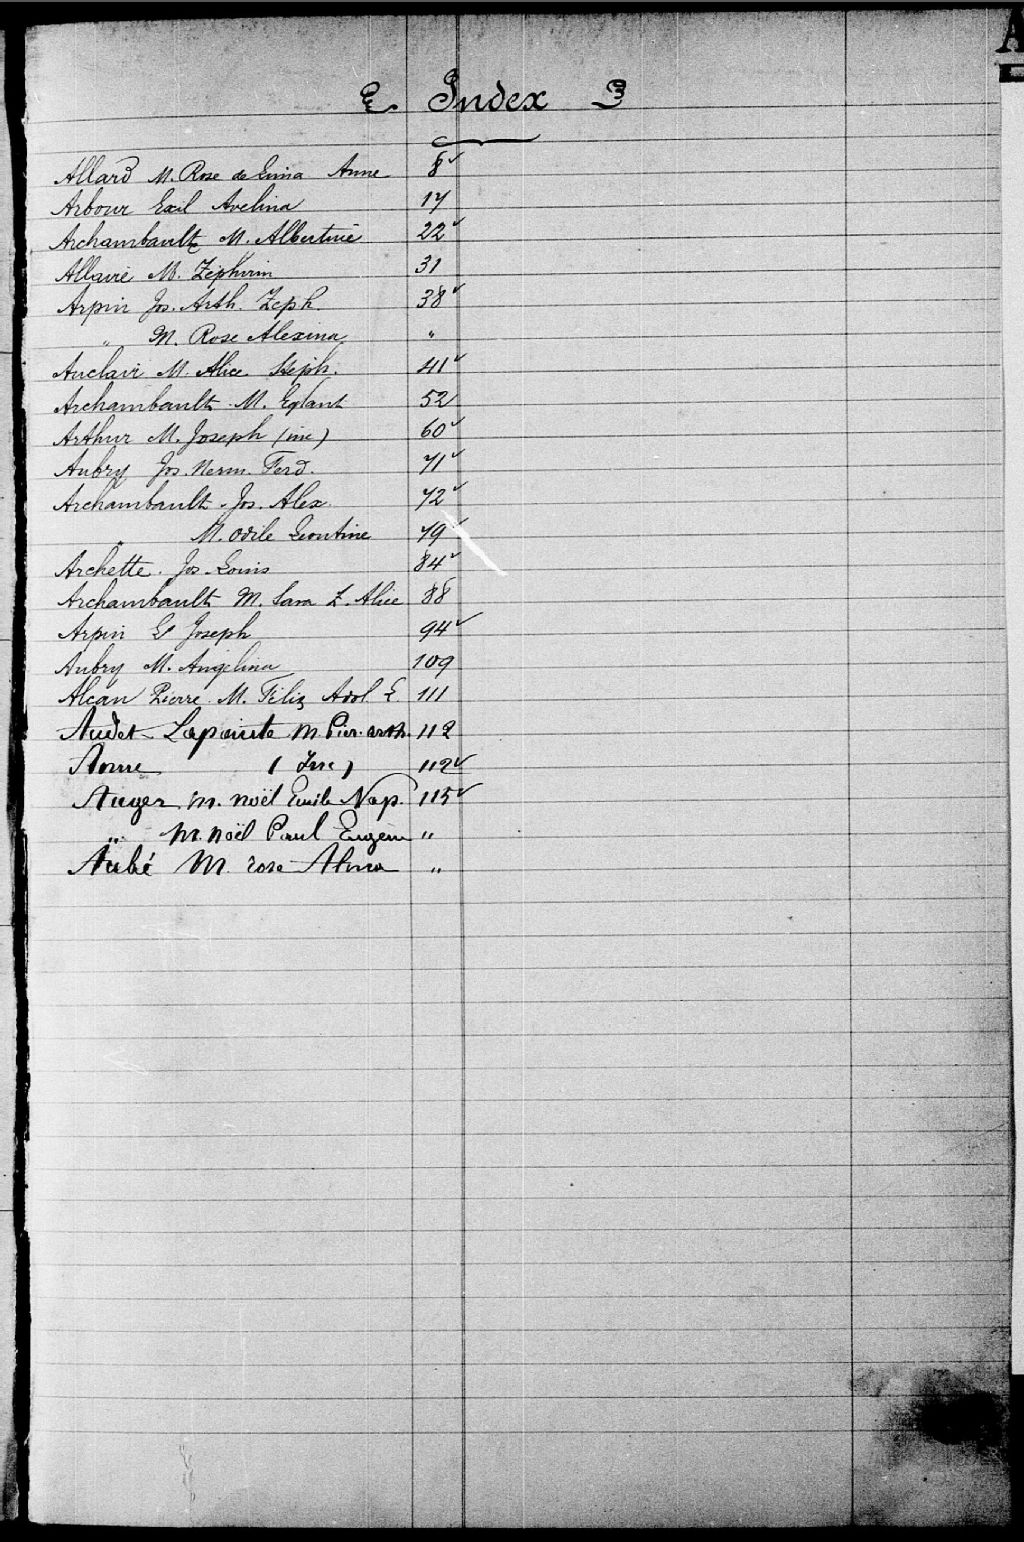 Index
Allard M. Rose de Lima Anne 8 ✓
Arbour Exil Avelina 17
Archambault M. Albertine 22 ✓
Allaire M. Zéphirin 31
Arpin Jos. Arth. Zeph. 38 ✓
" M. Rose Alexina "
Auclair M. Alice Steph. 41 ✓
Archambault M. Eglant 52
Arthur M. Joseph (inc) 60 ✓
Aubry Jos. Nerm. Ferd. 71 ✓
Archambault Jos. Alex. 72 ✓
" M. Odile Leontine 79 ✓
Archette Jos. Louis 84 ✓
Archambault M. Sara Z. Alice 88
Arpin Ls Joseph 94 ✓
Aubry M. Angelina 109
Alcan Pierre M. Félix Adol. E. 111
Audet Lapointe M. Pier. arth. 112
Anne (Inc) 112 ✓
Auger M. Noël Emile Nap. 115 ✓
" M. Noël Paul Eugène "
Aubé M. rose Alma "
A